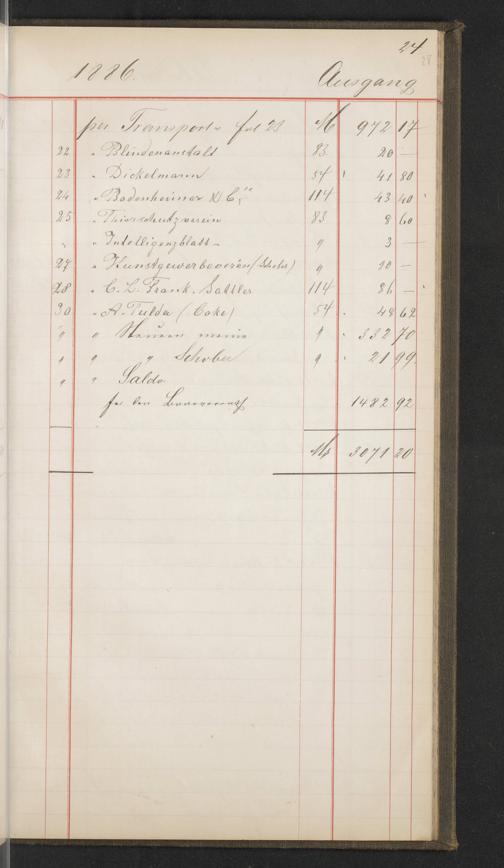 24
28
1886. Ausgang
per Transport v. fol 23 M 972 17
22 " Blindenanstalt 83 20 —
23 " Dickelmann 54 41 80
24 " Bodenheimer & Cie 114 43 40
25 " Thierschutzverein 83 8 60
" " Intelligenzblatt 9 3 —
27 " Kunstgewerbeverein (Schober) 9 10 —
28 " C. L. Frank. Sattler 114 86 —
30 " A. Tulda (Coke) 54 48 62
" " Steuern meine 9 332 70
" " " Schober 9 21 99
" " Saldo
1482 92
M 3071 20